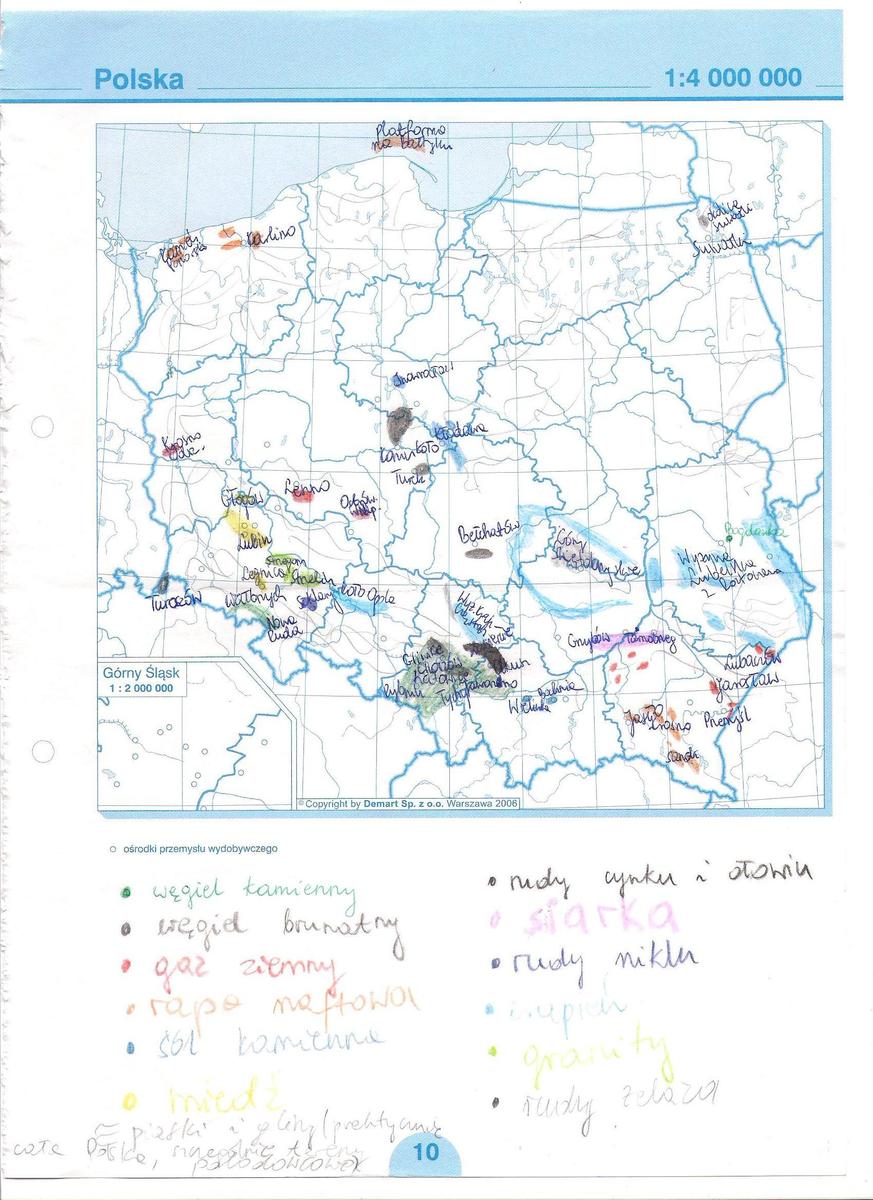 Polska
1:4 000 000
Platforma
na Bałtyku
Kamień
Pomorski
Karlino
Suwałki
Inowrocław
Kłodawa
Konin Koło
Turek
Krosno
Odrz.
Głogów
Lubin
Ostrów
wlkp.
Bełchatów
Góry
Świętokrzyskie
Bogdanka
Wyżyna
Lubelska
Strzegom
Legnica
Strzelin
Wałbrzych
Szklary
koło Opola
Turoszów
Nowa
Ruda
Tarnobrzeg
Gliwice
Chorzów
Katowice
Rybnik
Tychy
Jaworzno
Bochnia
Wieliczka
Lubaczów
Jarosław
Przemyśl
Jasło
Krosno
Sanok
Górny Śląsk
1 : 2 000 000
© Copyright by Demart Sp. z o.o. Warszawa 2006
ośrodki przemysłu wydobywczego
węgiel kamienny
węgiel brunatny
gaz ziemny
ropa naftowa
sól kamienna
miedź
rudy cynku i ołowiu
siarka
rudy niklu
wapień
granity
rudy żelaza
= piaski i gliny (praktycznie
cała Polska, szczególnie tereny
polodowcowe)
10